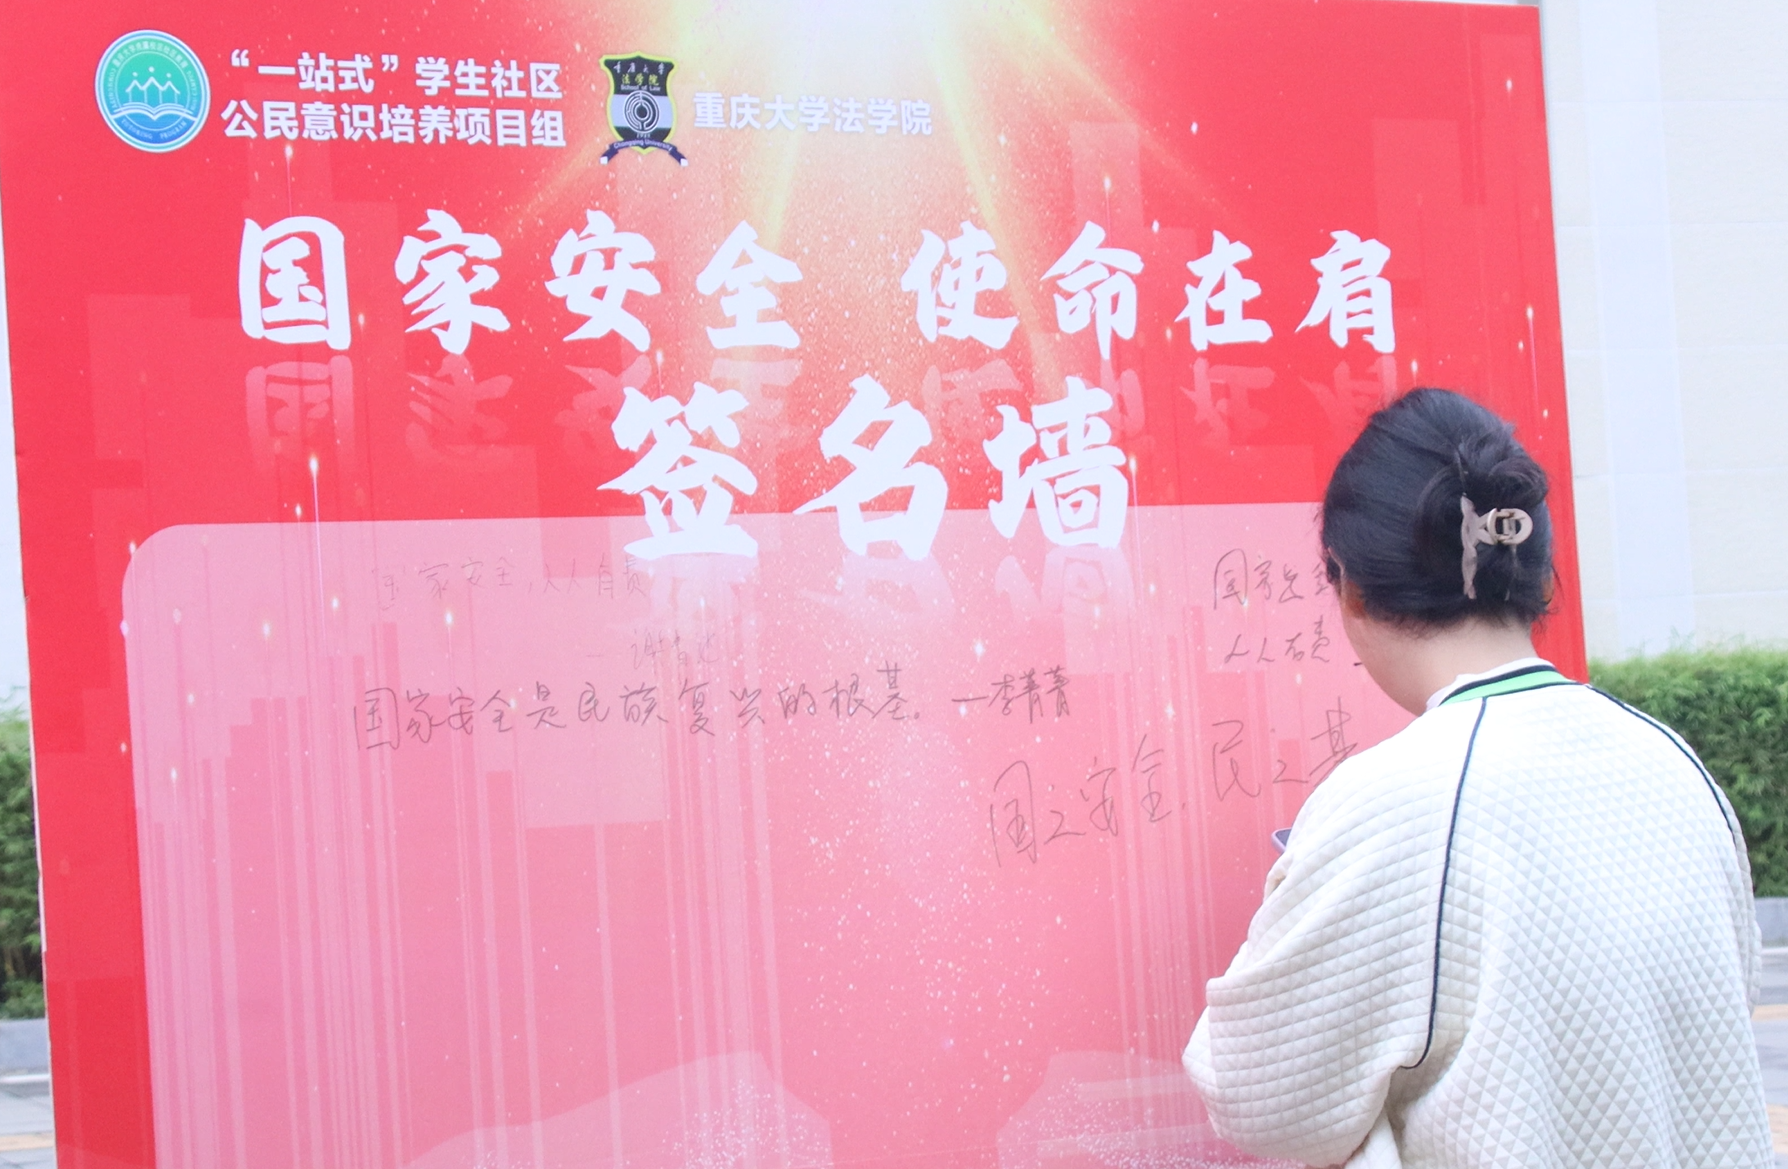 “一站式”学生社区
公民意识培养项目组
重庆大学
法学院
School of Law
Chongqing University
重庆大学法学院
国家安全 使命在肩
签名墙
国家安全,人人有责
国家安全
人人有责
国家安全是民族复兴的根基。—李菁菁
国之安全,民之基